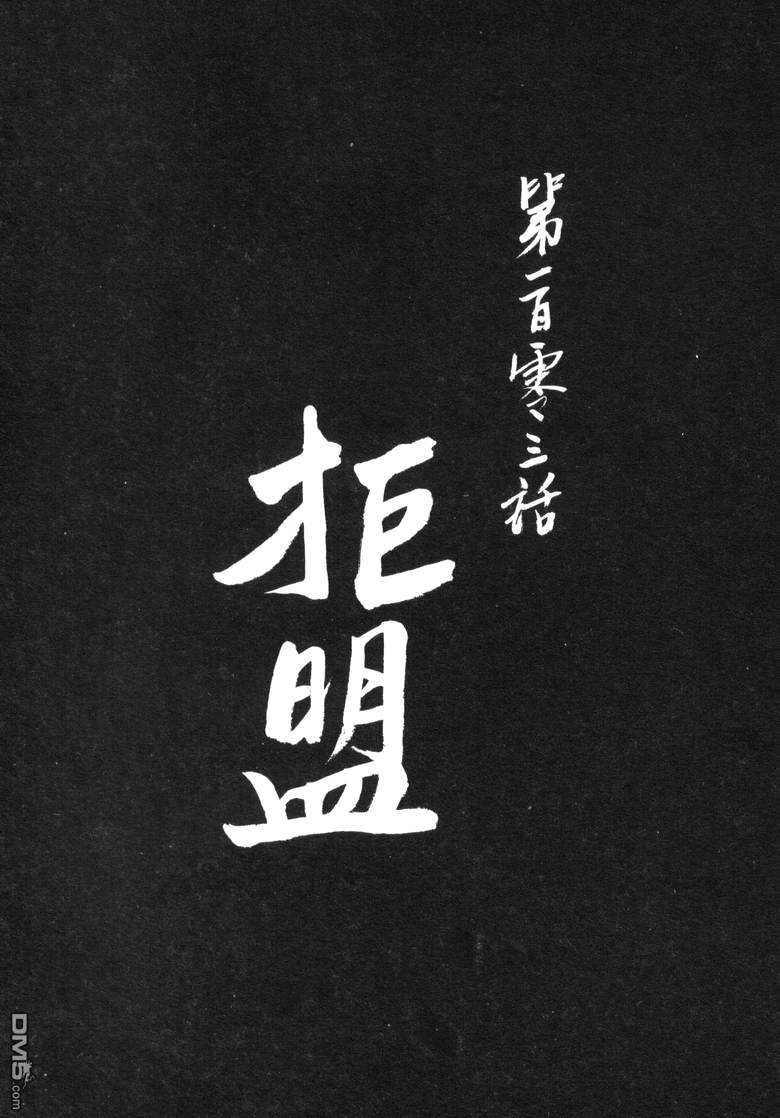 第一百零三话
拒盟
DM5.com